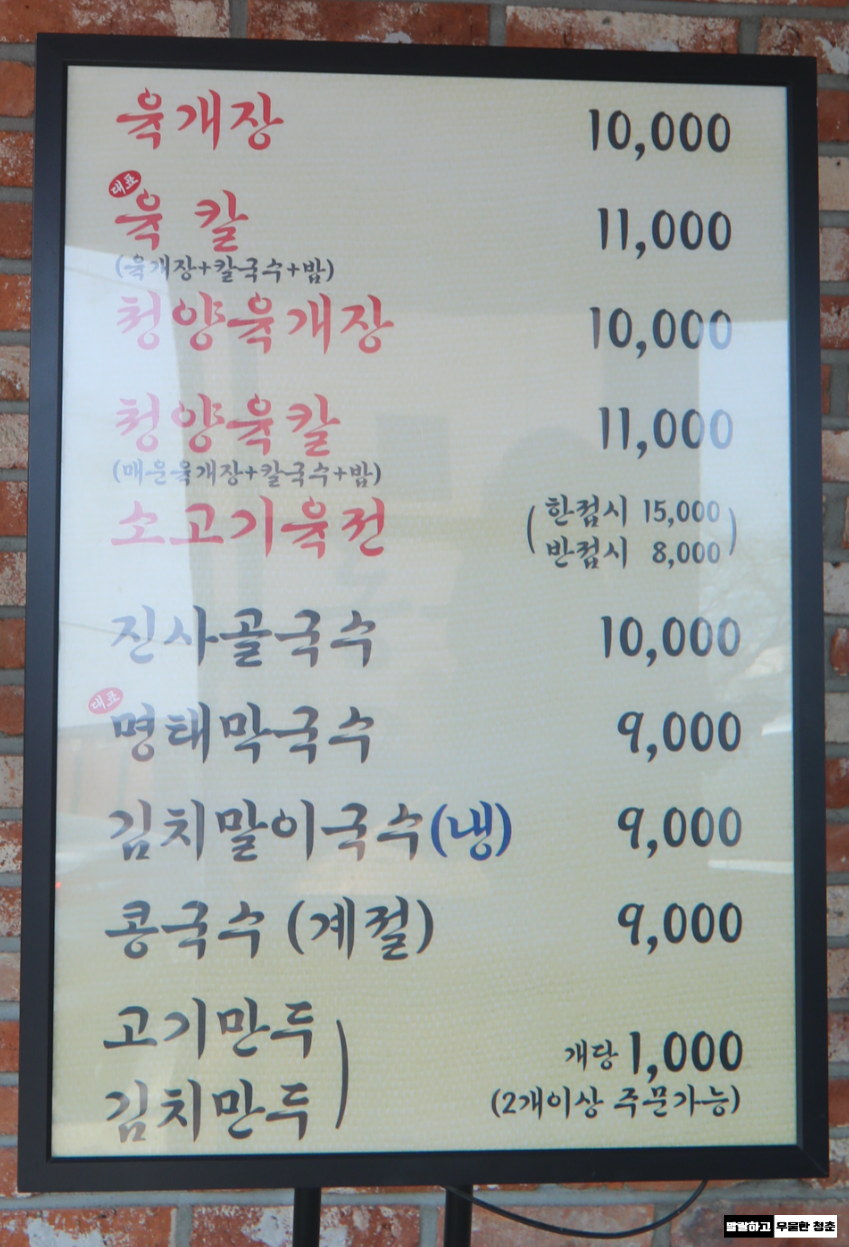 육개장 10,000
대표
육 칼 11,000
(육개장+칼국수+밥)
청양육개장 10,000
청양육칼 11,000
(매운육개장+칼국수+밥)
소고기육전 (한접시 15,000
반접시 8,000)
진사골국수 10,000
대표
명태막국수 9,000
김치말이국수(냉) 9,000
콩국수 (계절) 9,000
고기만두
김치만두) 개당 1,000
(2개이상 주문가능)
발랄하고 우울한 청춘